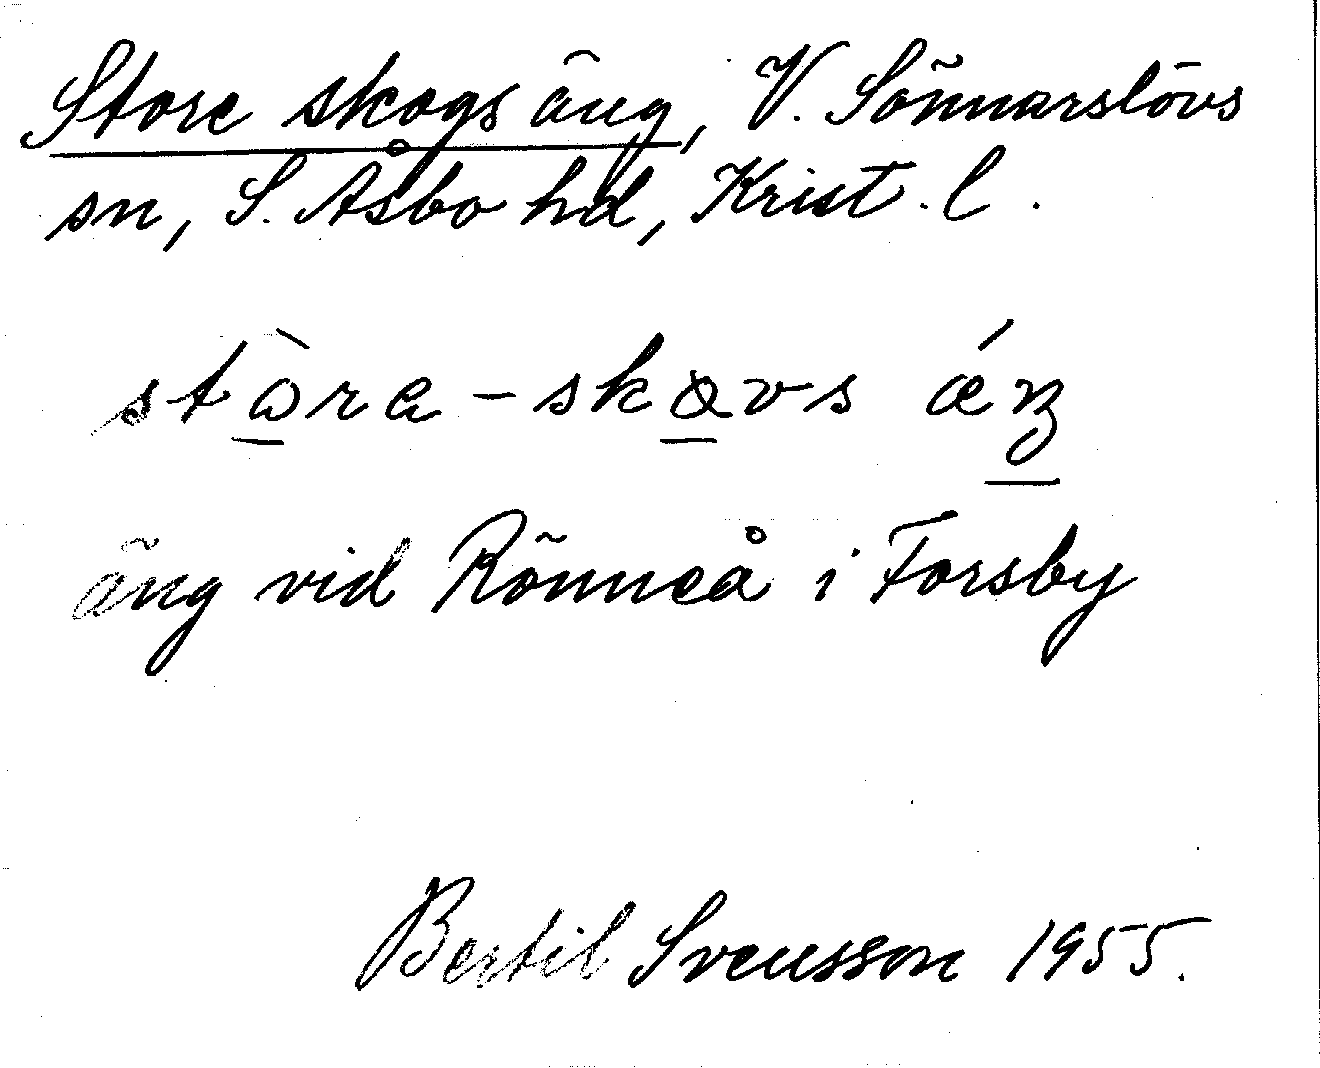 Store skogs äng, V. Sönnarslövs
sn, S. Åsbo hd, Krist. l.
stòra-skovs ǽŋ
äng vid Rönneå i Forsby
Bertil Svensson 1955.